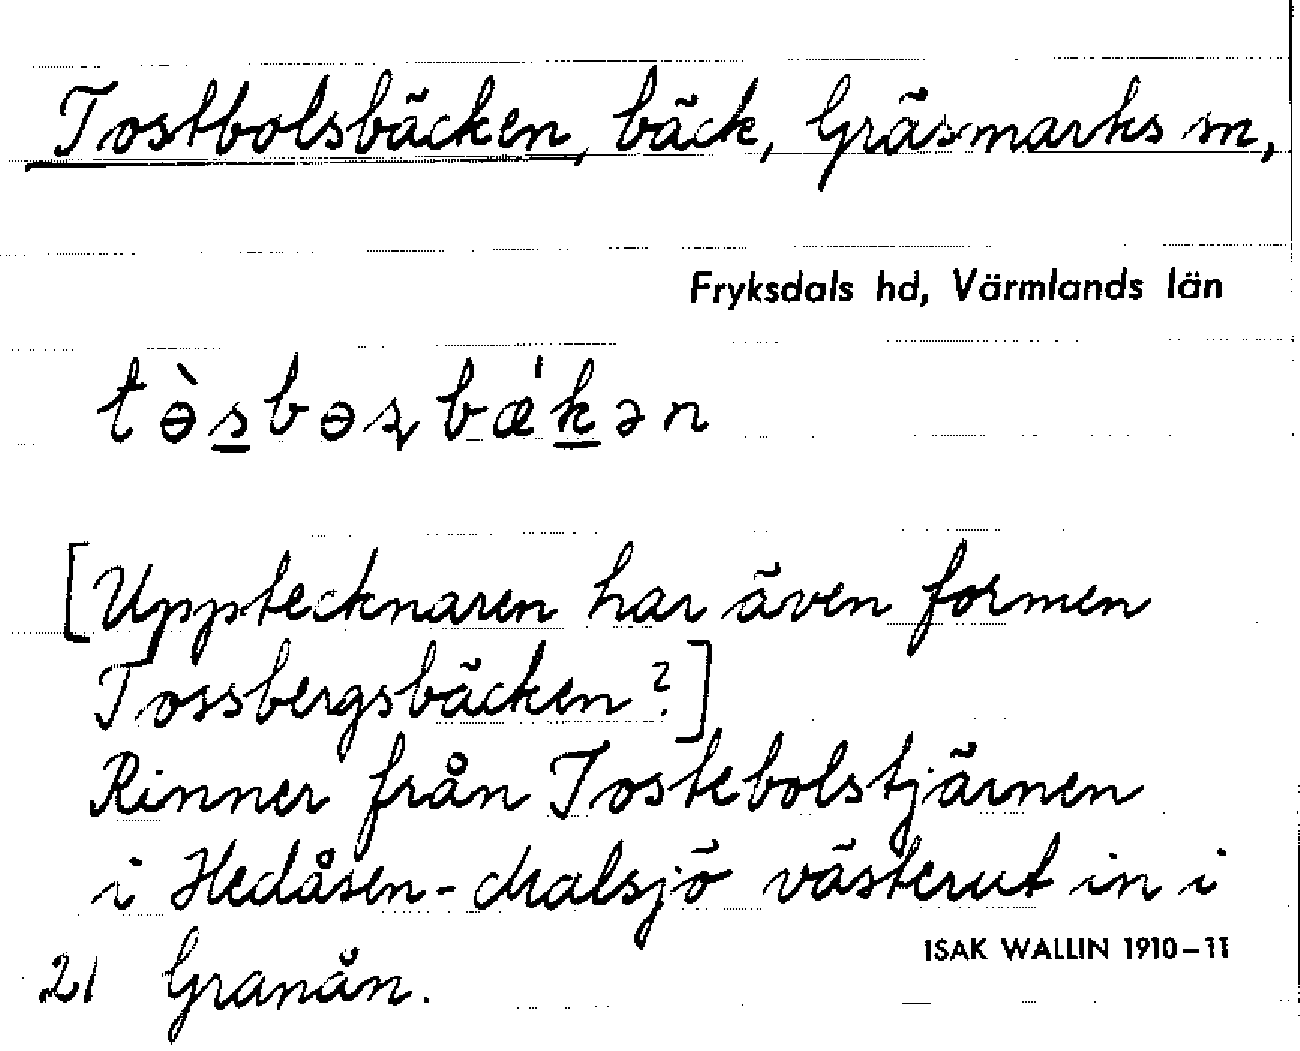 Tostbolsbäcken, bäck, Gräsmarks sn,
Fryksdals hd, Värmlands län
tɵ̀s̲bɵʂbæ̍k̲ən
[Upptecknaren har även formen
Tossbergsbäcken?]
Rinner från Tostebolstjärnen
i Hedåsen-Malsjö västerut in i
21 Granån.
ISAK WALLIN 1910–11